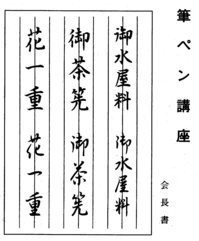 筆ペン講座
会長書
御水屋料 御水屋料
御茶筅 御茶筅
花一重 花一重